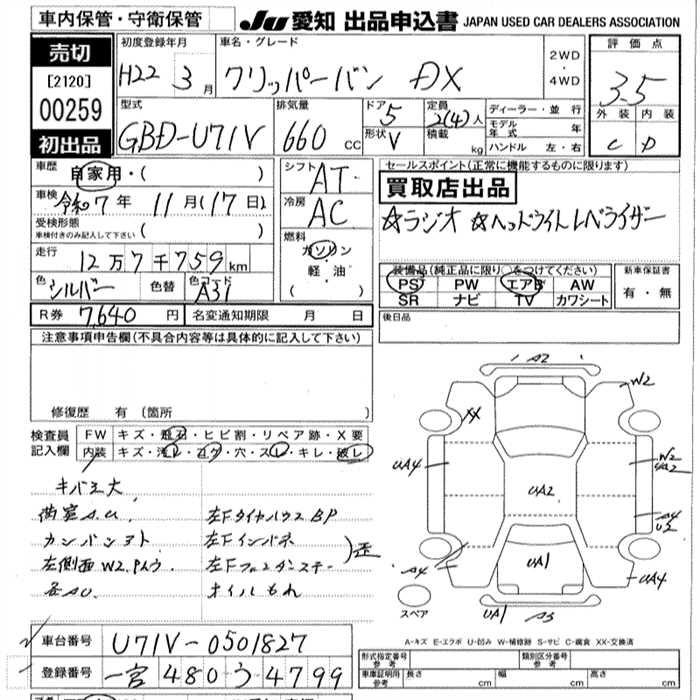 車内保管・守衛保管
JU 愛知 出品申込書 JAPAN USED CAR DEALERS ASSOCIATION
売切
[2120]
00259
初出品
初度登録年月
H22 3月
車名・グレード
クリッパーバン DX
2WD
・
4WD
評価点
3.5
外装 内装
C D
型式
GBD-U71V
排気量
660 cc
ドア 5
形状 V
定員 2(4)人
積載 kg
ディーラー・並行
モデル年式 年
ハンドル 左・右
車歴 自家用・( )
車検 令和7年 11月(17日)
受検形態
車検付きのみ記入して下さい ( )
走行 12万7千759km
色 シルバー 色替 色コード A31
シフト AT
冷房 AC
燃料
ガソリン
軽油
( )
セールスポイント(正常に機能するものに限ります)
買取店出品
☆ラジオ ☆ヘッドライトレベライザー
装備品(純正品に限り○をつけてください)
PS PW エアB AW
SR ナビ TV カワシート
新車保証書
有・無
R券 7,640円 名変通知期限 月 日
後日品
注意事項申告欄(不具合内容等は具体的に記入して下さい)
修復歴 有 (箇所 )
検査員記入欄
FW キズ・飛石・ヒビ割・リペア跡・X要
内装 キズ・汚レ・コゲ・穴・スレ・キレ・破レ
カンバンヨト
左側面W2.Pムラ
各AU
左FタイヤハウスBP
左Fインパネ
オイルもれ
歪
A2
W2
XX
UA4
W2
UA2
UA2
A4
U2
UA1
A4
UA4
UA1
A3
スペア
A-キズ E-エクボ U-凹み W-補修跡 S-サビ C-腐食 XX-交換済
車台番号 U71V-0501827
登録番号 一宮 480 う 4799
形式指定番号 参考
類別区分番号 参考
車庫証明用 参考 長さ cm 幅 cm 高さ cm